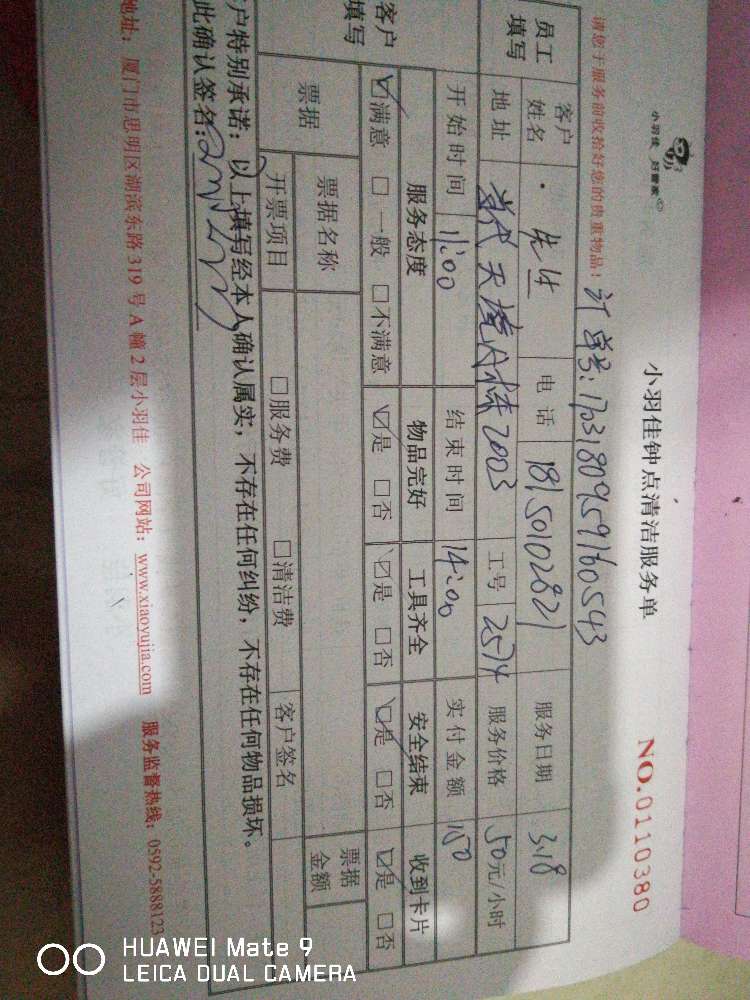 小羽佳 好管家
小羽佳钟点清洁服务单
NO.0110380
请您于服务前收拾好您的贵重物品！
订单号：1703180959160543
员工填写
客户姓名 先生 电话 18150102821 服务日期 3.18
地址 天境A栋2003 工号 2574 服务价格 50元/小时
开始时间 11:00 结束时间 14:00 实付金额 150
客户填写
服务态度 物品完好 工具齐全 安全结束 收到卡片
☑满意 □一般 □不满意 ☑是 □否 ☑是 □否 ☑是 □否 ☑是 □否
票据 票据名称 票据金额
开票项目 □服务费 □清洁费 客户签名
户特别承诺：以上填写经本人确认属实，不存在任何纠纷，不存在任何物品损坏。
此确认签名：
地址：厦门市思明区湖滨东路319号A幢2层小羽佳 公司网站：www.xiaoyujia.com 服务监督热线：0592-5888123
HUAWEI Mate 9
LEICA DUAL CAMERA